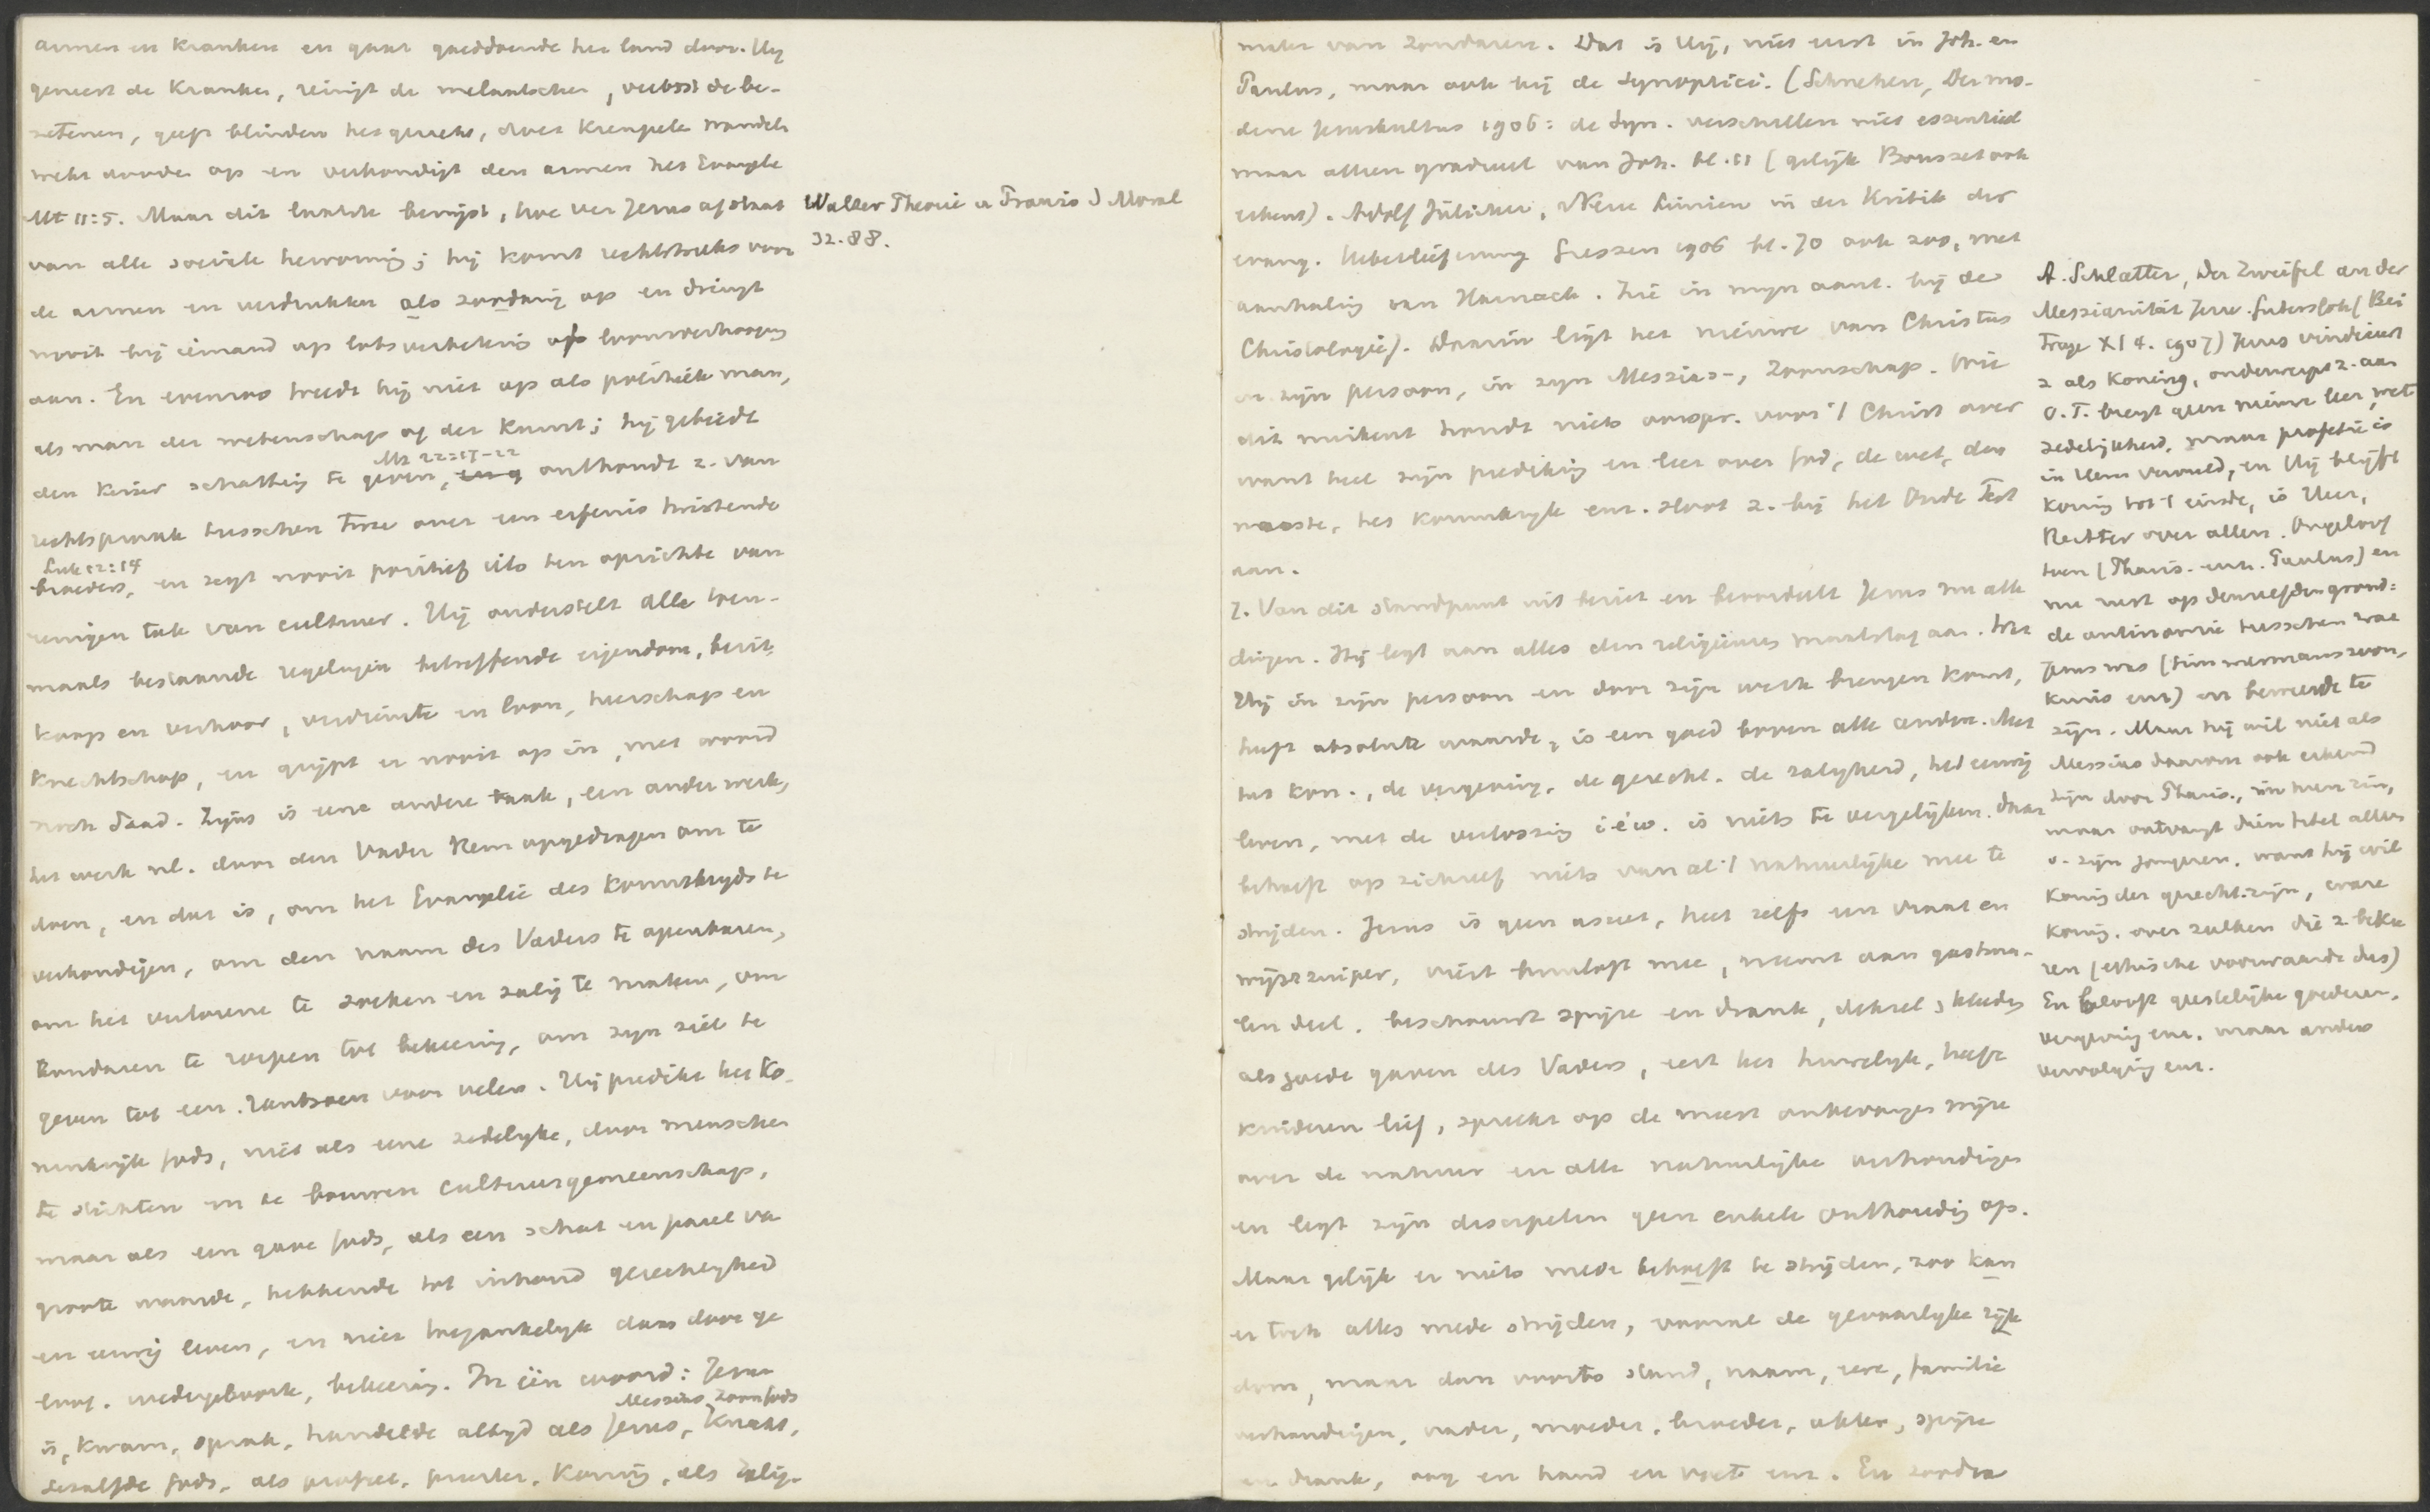 armen en kranken en gaat goeddoende het land door. Hij
geneest de kranken, reinigt de melaatschen, verlost de be-
zetenen, geeft blinden het gezicht, doet kreupele wandelen
wekt dooden op en verkondigt den armen het Evangelie
Mt 11:5. Maar dit laatste bewijst, hoe ver Jezus afstaat
van alle sociale hervorming; hij komt rechtstreeks voor
de armen en verdrukten als zoodanig op en dringt
nooit bij iemand op lotsverbetering of loonsverhooging
aan. En evenzoo treedt hij niet op als politiek man,
als man der wetenschap of der kunst; hij gebiedt
Mt 22:17-22
den keizer schatting te geven, onthoudt z. van
rechtspraak tusschen twee over een erfenis twistende
Luk 12:14
broeders, en zegt nooit positief iets ten opzichte van
eenigen tak van cultuur. Hij onderstelt alle toen-
maals bestaande regelingen betreffende eigendom, bezit,
koop en verkoop, verdienste en loon, heerschap en
knechtschap, en grijpt er nooit op in, met woord
noch daad. Zijns is eene andere taak, een ander werk,
het werk nl. door den Vader Hem opgedragen om te
doen, en dat is, om het Evangelie des Koninkrijks te
verkondigen, om den naam des Vaders te openbaren,
om het verlorene te zoeken en zalig te maken, om
zondaren te roepen tot bekeering, om zijn ziel te
geven tot een rantsoen voor velen. Hij predikt het Ko-
ninkrijk Gods, niet als eene zedelijke, door menschen
te stichten en te bouwen cultuurgemeenschap,
maar als een gave Gods, als een schat en parel van
groote waarde, hebbende tot inhoud gerechtigheid
en eeuwig leven, en niet toegankelijk dan door ge
loof, wedergeboorte, bekeering. In één woord: Jezus
Messias, Zoon Gods
is, kwam, sprak, handelde altijd als Jezus, Knecht,
Gezalfde Gods, als profeet, priester, koning, als Zalig-
Walter Theorie u Praxis d Moral
32. 88.
maker van zondaren. Dat is Hij, niet eerst in Joh. en
Paulus, maar ook bij de Synoptici. (Schnehen, Der mo-
derne Jesuskultus 1906: de Syn. verschillen niet essentieel
maar alleen gradueel van Joh. bl. 11 (gelijk Bousset ook
erkent). Adolf Jülicher, Neue Linien in der Kritik der
evang. Ueberlieferung Giessen 1906 bl. 70 ook zoo, met
aanhaling van Harnack. Zie in mijn aant. bij de
Christologie). Daarin ligt het nieuwe van Christus
in zijn persoon, in zijn Messias-, Zoonschap. Wie
dit miskent houdt niets oorspr. voor 't Christ over
want heel zijn prediking en leer over God, de wet, den
naaste, het koninkrijk enz. sloot z. bij het Oude Test
aan.
7. Van dit standpunt uit beziet en beoordeelt Jezus nu alle
dingen. Hij legt aan alles den religieuzen maatstaf aan. Wat
Hij in zijn persoon en door zijn werk brengen komt,
heeft absolute waarde, is een goed boven alle andere. Met
het kon., de vergeving, de gerecht. de zaligheid, het eeuwig
leven, met de verlossing i.é.w. is niets te vergelijken. Daar
behoeft op zichzelf niets van al 't natuurlijke mee te
strijden. Jezus is geen asceet, heet zelfs een vraat en
wijnzuiper, viert bruiloft mee, neemt aan gastma-
len deel. beschouwt spijze en drank, deksel, kleeding
als goede gaven des Vaders, eert het huwelijk, heeft
kinderen lief, spreekt op de meest onbevangen wijze
over de natuur en alle natuurlijke verhoudingen
en legt zijn discipelen geen enkele onthouding op.
Maar gelijk er niets mede behoeft te strijden, zoo kan
er toch alles mede strijden, vooral de gevaarlijke rijk
dom, maar dan voorts stand, naam, eere, familie
verhoudingen, vader, moeder, broeder, akker, spijze
en drank, oog en hand en voet enz. En zoodra
A. Schlatter, Der Zweifel an der
Messianität Jesu. Gütersloh (Bei
träge XI 4. 1907) Jezus vindiceert
z als Koning, onderwerpt z. aan
O.T. brengt geen nieuwe leer, wet
zedelijkheid, maar profetie is
in Hem vervuld, en Hij blijft
koning tot 't einde, is Heer,
Rechter over allen. Ongeloof
toen (Phariz. enz. Paulus) en
nu rust op denzelfden grond:
de antinomie tusschen wat
Jezus was (timmermanszoon,
kruis enz) en beweerde te
zijn. Maar hij wil niet als
Messias daarom ook erkend
zijn door Phariz., in hun zin,
maar ontvangt dien titel alleen
v. zijn jongeren. want hij wil
koning der gerecht. zijn, ware
koning. over zulken die z. bekee
ren (ethische voorwaarde dus)
En belooft geestelijke goederen,
vergeving enz. maar anders
vervolging enz.